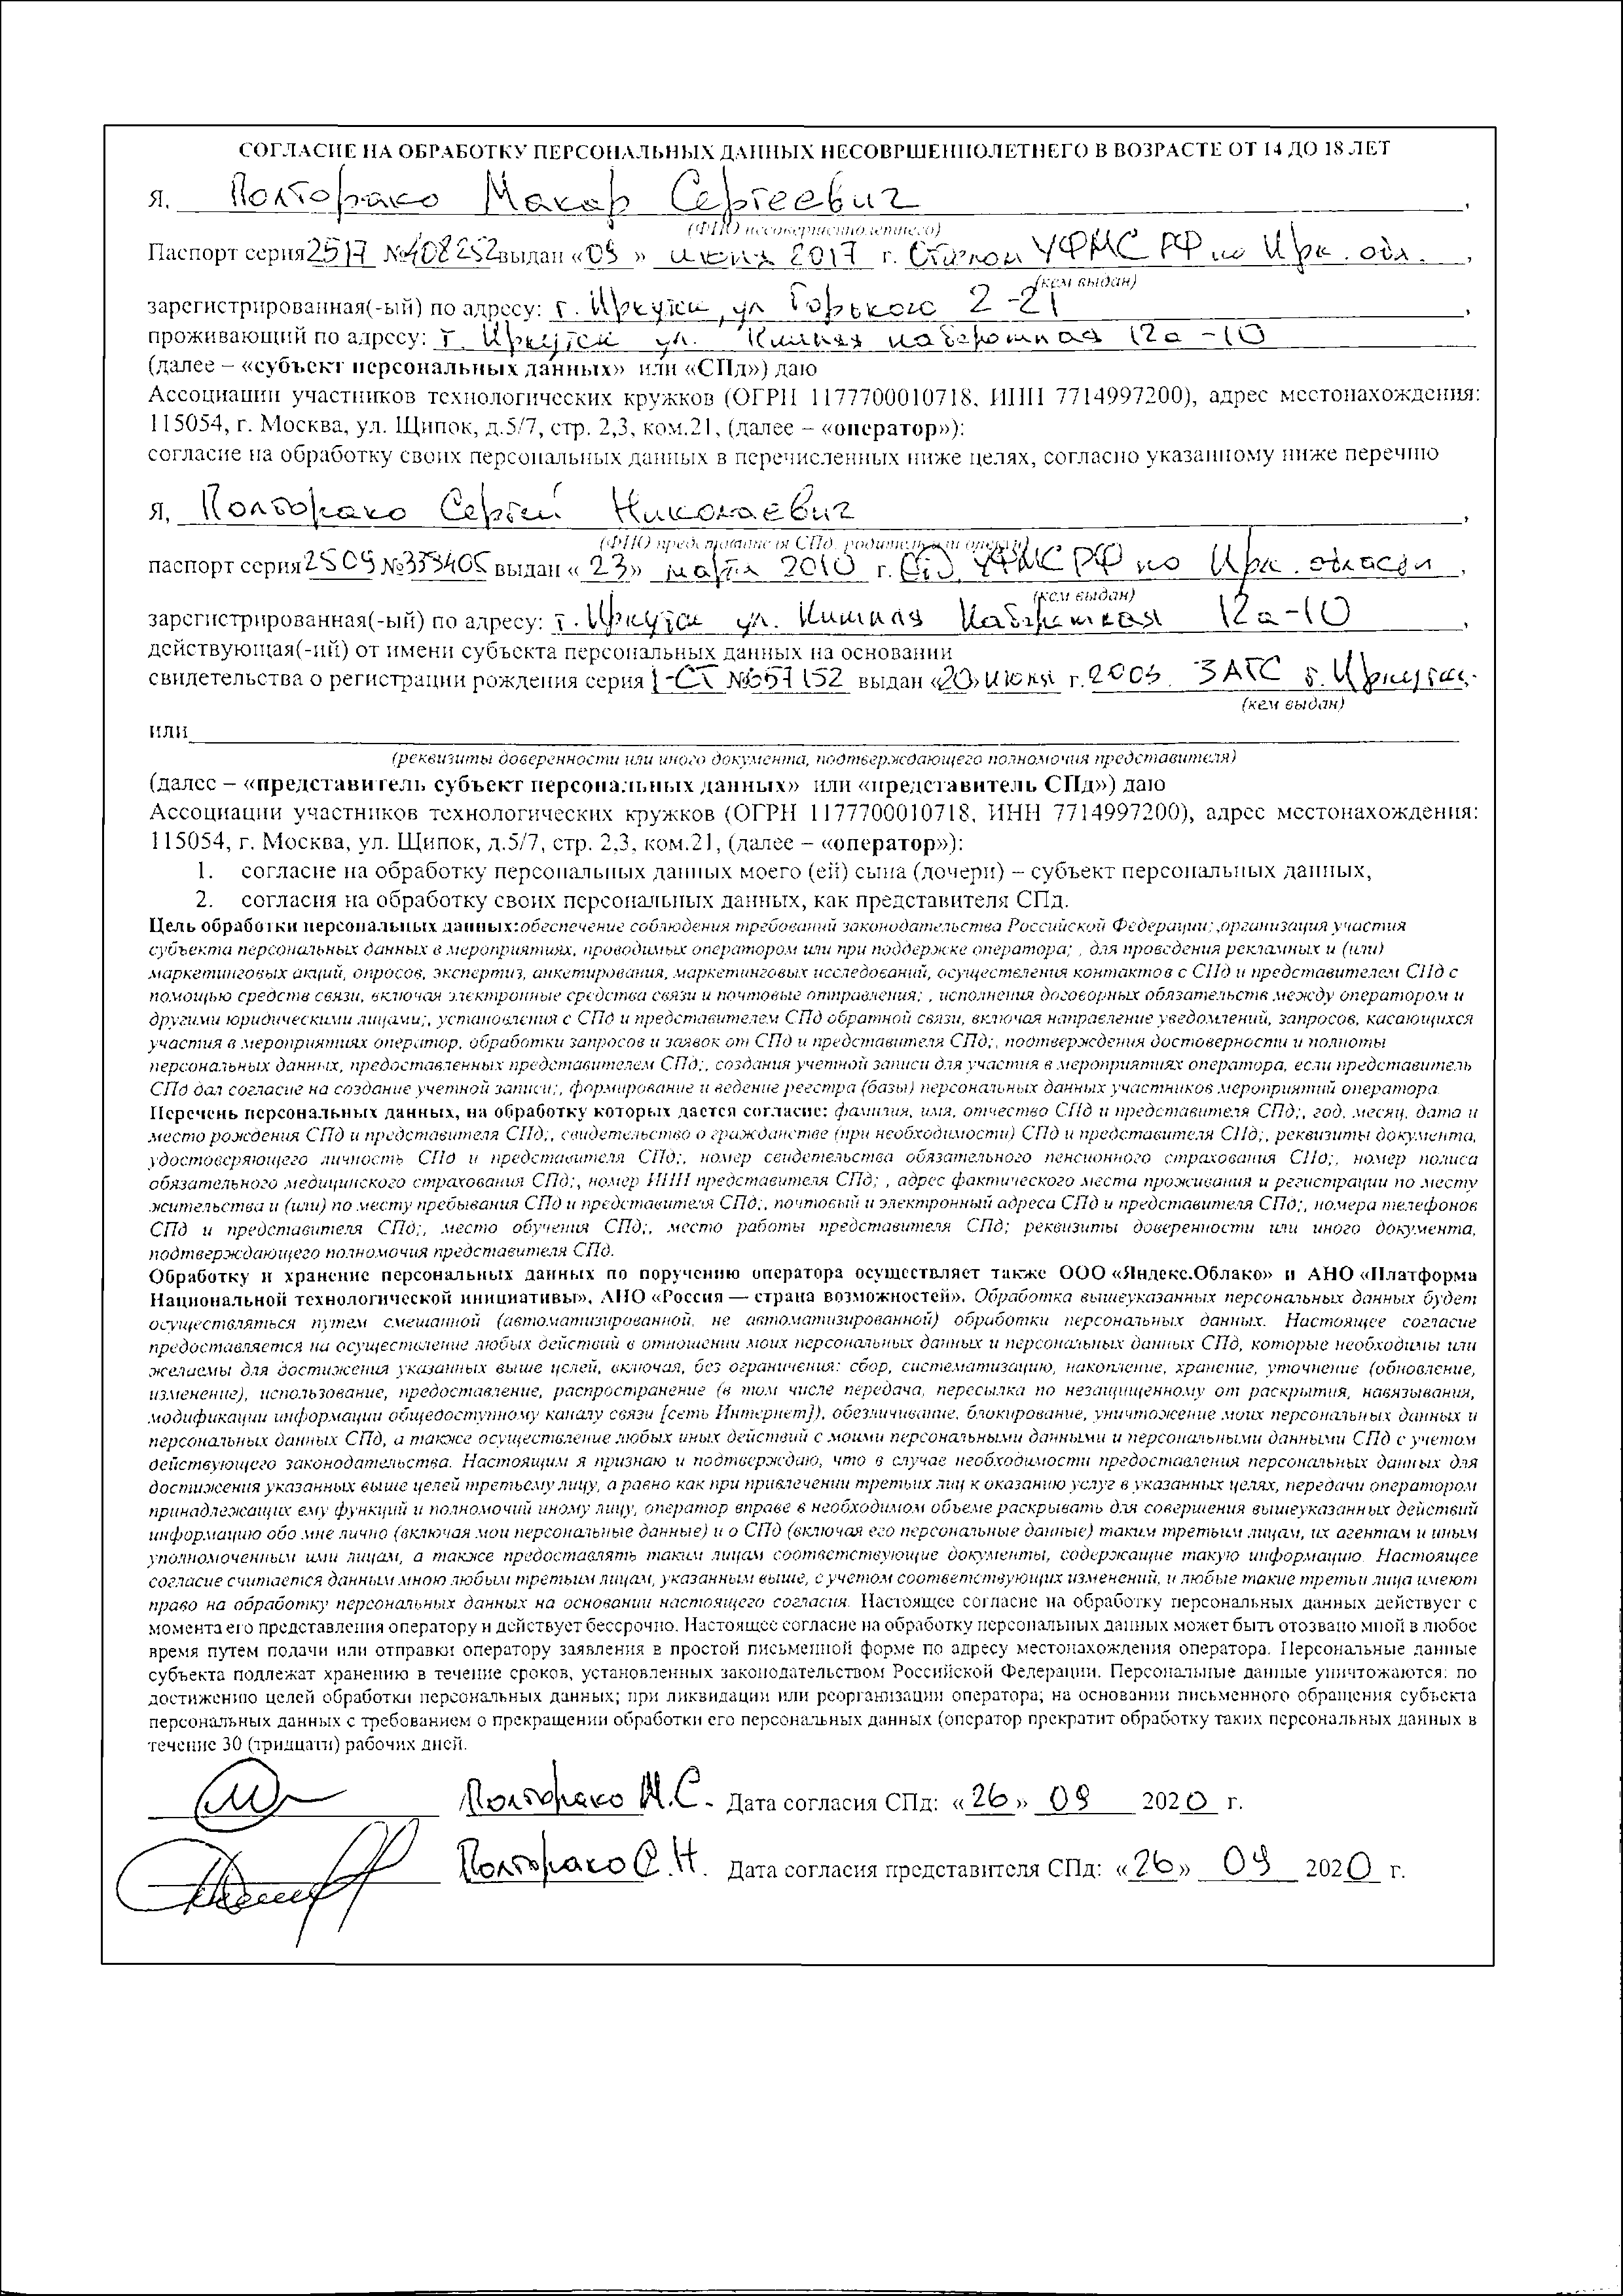 СОГЛАСИЕ НА ОБРАБОТКУ ПЕРСОНАЛЬНЫХ ДАННЫХ НЕСОВРШЕННОЛЕТНЕГО В ВОЗРАСТЕ ОТ 14 ДО 18 ЛЕТ
Я, Полторако Макар Сергеевич,
(ФИО несовершеннолетнего)
Паспорт серия 2517 №408252 выдан «09» июня 2017 г. УФМС РФ по Ирк. обл.,
(кем выдан)
зарегистрированная(-ый) по адресу: г. Иркутск, ул Горького 2-21,
проживающий по адресу: г. Иркутск ул. Нижняя набережная 12а-10
(далее – «субъект персональных данных» или «СПд») даю
Ассоциации участников технологических кружков (ОГРН 1177700010718, ИНН 7714997200), адрес местонахождения:
115054, г. Москва, ул. Щипок, д.5/7, стр. 2,3, ком.21, (далее – «оператор»):
согласие на обработку своих персональных данных в перечисленных ниже целях, согласно указанному ниже перечню
Я, Полторако Сергей Николаевич,
(ФИО представителя СПд, родитель или опекун)
паспорт серия 2509 № выдан «23» марта 2010 г. УФМС РФ по Ирк. области,
(кем выдан)
зарегистрированная(-ый) по адресу: г. Иркутск ул. Нижняя Набережная 12а-10,
действующая(-ий) от имени субъекта персональных данных на основании
свидетельства о регистрации рождения серия 1-СТ №657152 выдан «20» июня г.2003. ЗАГС г. Иркутск.
(кем выдан)
или
(реквизиты доверенности или иного документа, подтверждающего полномочия представителя)
(далее – «представитель субъект персональных данных» или «представитель СПд») даю
Ассоциации участников технологических кружков (ОГРН 1177700010718, ИНН 7714997200), адрес местонахождения:
115054, г. Москва, ул. Щипок, д.5/7, стр. 2,3, ком.21, (далее – «оператор»):
1. согласие на обработку персональных данных моего (ей) сына (дочери) – субъект персональных данных,
2. согласия на обработку своих персональных данных, как представителя СПд.
Цель обработки персональных данных:обеспечение соблюдения требований законодательства Российской Федерации;,организация участия
субъекта персональных данных в мероприятиях, проводимых оператором или при поддержке оператора; , для проведения рекламных и (или)
маркетинговых акций, опросов, экспертиз, анкетирования, маркетинговых исследований, осуществления контактов с СПд и представителем СПд с
помощью средств связи, включая электронные средства связи и почтовые отправления; , исполнения договорных обязательств между оператором и
другими юридическими лицами;, установления с СПд и представителем СПд обратной связи, включая направление уведомлений, запросов, касающихся
участия в мероприятиях оператор, обработки запросов и заявок от СПд и представителя СПд;, подтверждения достоверности и полноты
персональных данных, предоставленных представителем СПд;, создания учетной записи для участия в мероприятиях оператора, если представитель
СПд дал согласие на создание учетной записи;, формирование и ведение реестра (базы) персональных данных участников мероприятий оператора.
Перечень персональных данных, на обработку которых дается согласие: фамилия, имя, отчество СПд и представителя СПд;, год, месяц, дата и
место рождения СПд и представителя СПд;, свидетельство о гражданстве (при необходимости) СПд и представителя СПд;, реквизиты документа,
удостоверяющего личность СПд и представителя СПд;, номер свидетельства обязательного пенсионного страхования СПд;, номер полиса
обязательного медицинского страхования СПд;, номер ИНН представителя СПд; , адрес фактического места проживания и регистрации по месту
жительства и (или) по месту пребывания СПд и представителя СПд;, почтовый и электронный адреса СПд и представителя СПд;, номера телефонов
СПд и представителя СПд;, место обучения СПд;, место работы представителя СПд; реквизиты доверенности или иного документа,
подтверждающего полномочия представителя СПд.
Обработку и хранение персональных данных по поручению оператора осуществляет также ООО «Яндекс.Облако» и АНО «Платформа
Национальной технологической инициативы», АНО «Россия — страна возможностей». Обработка вышеуказанных персональных данных будет
осуществляться путем смешанной (автоматизированной, не автоматизированной) обработки персональных данных. Настоящее согласие
предоставляется на осуществление любых действий в отношении моих персональных данных и персональных данных СПд, которые необходимы или
желаемы для достижения указанных выше целей, включая, без ограничения: сбор, систематизацию, накопление, хранение, уточнение (обновление,
изменение), использование, предоставление, распространение (в том числе передача, пересылка по незащищенному от раскрытия, навязывания,
модификации информации общедоступному каналу связи [сеть Интернет]), обезличивание, блокирование, уничтожение моих персональных данных и
персональных данных СПд, а также осуществление любых иных действий с моими персональными данными и персональными данными СПд с учетом
действующего законодательства. Настоящим я признаю и подтверждаю, что в случае необходимости предоставления персональных данных для
достижения указанных выше целей третьему лицу, а равно как при привлечении третьих лиц к оказанию услуг в указанных целях, передачи оператором
принадлежащих ему функций и полномочий иному лицу, оператор вправе в необходимом объеме раскрывать для совершения вышеуказанных действий
информацию обо мне лично (включая мои персональные данные) и о СПд (включая его персональные данные) таким третьим лицам, их агентам и иным
уполномоченным ими лицам, а также предоставлять таким лицам соответствующие документы, содержащие такую информацию. Настоящее
согласие считается данным мною любым третьим лицам, указанным выше, с учетом соответствующих изменений, и любые такие третьи лица имеют
право на обработку персональных данных на основании настоящего согласия. Настоящее согласие на обработку персональных данных действует с
момента его представления оператору и действует бессрочно. Настоящее согласие на обработку персональных данных может быть отозвано мной в любое
время путем подачи или отправки оператору заявления в простой письменной форме по адресу местонахождения оператора. Персональные данные
субъекта подлежат хранению в течение сроков, установленных законодательством Российской Федерации. Персональные данные уничтожаются: по
достижению целей обработки персональных данных; при ликвидации или реорганизации оператора; на основании письменного обращения субъекта
персональных данных с требованием о прекращении обработки его персональных данных (оператор прекратит обработку таких персональных данных в
течение 30 (тридцати) рабочих дней.
Полторако М.С. Дата согласия СПд: «26» 09 2020 г.
Полторако С.Н. Дата согласия представителя СПд: «26» 09 2020 г.